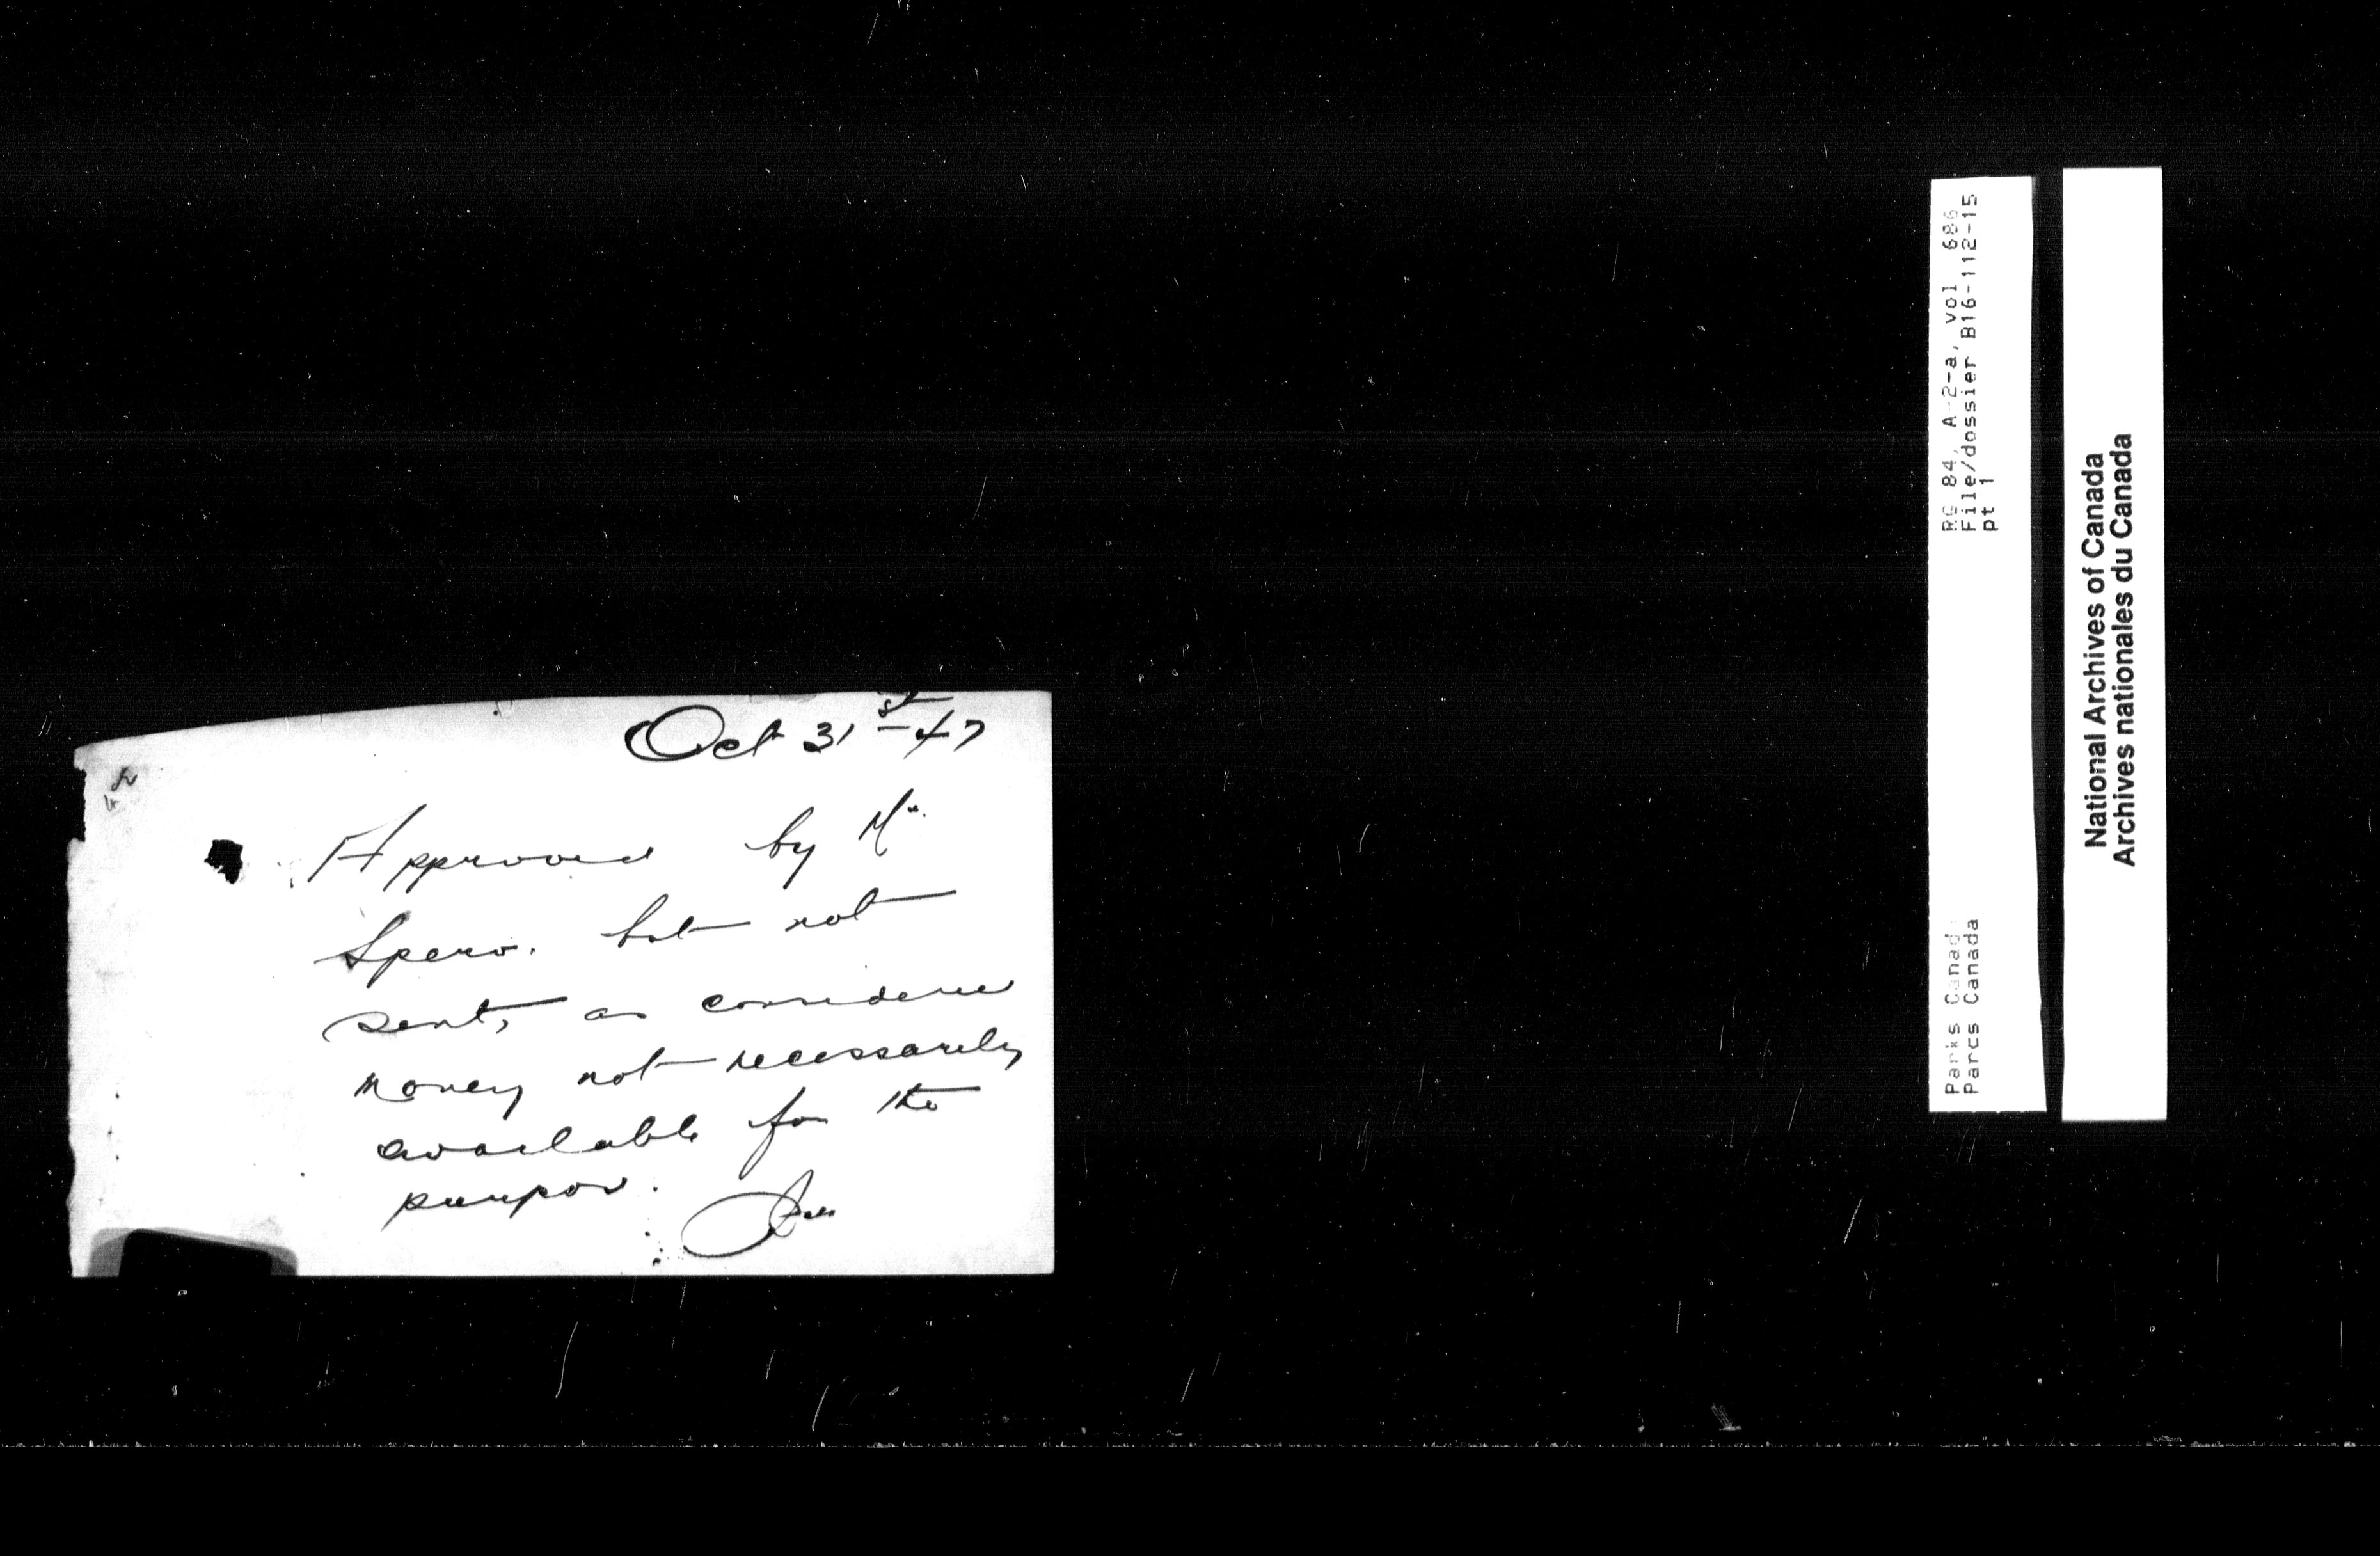 Oct 31st 47
Approved by Mr.
Spero. but not
sent, as considered
money not necessarily
available for the
purpose.
RG 84, A-2-a, vol. 686
File/dossier B16-112-15
pt 1
Parks Canad
Parcs Canada
National Archives of Canada
Archives nationales du Canada